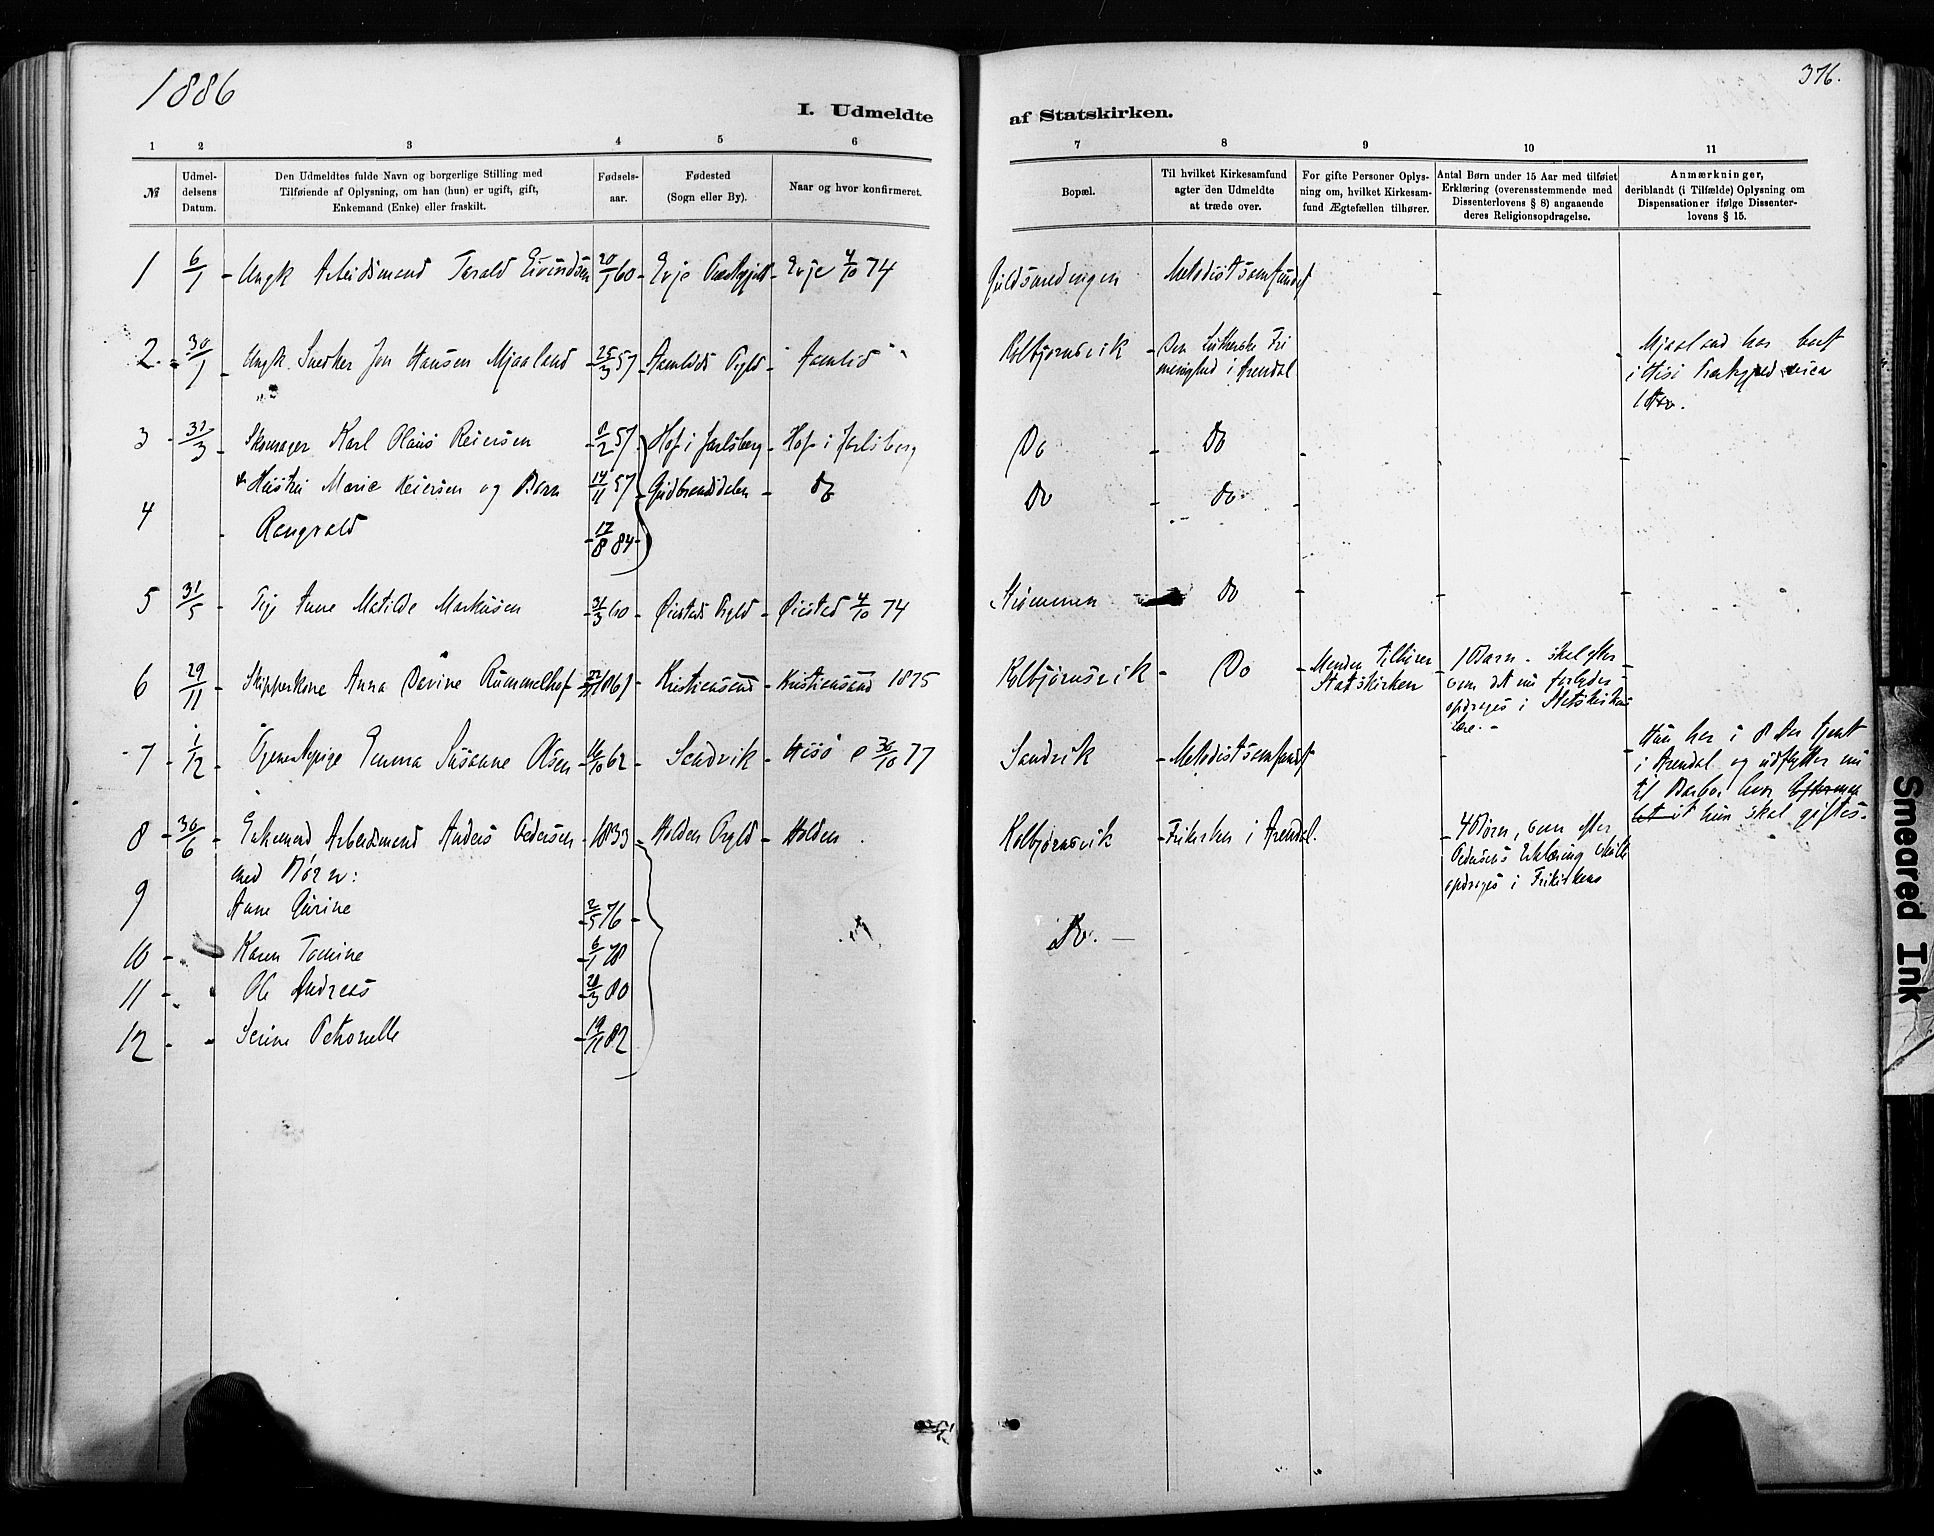 1886
376.
I. Udmeldte af Statskirken.
1 2 3 4 5 6 7 8 9 10 11
№
Udmel-
delsens
Datum.
Den Udmeldtes fulde Navn og borgerlige Stilling med
Tilføiende af Oplysning, om han (hun) er ugift, gift,
Enkemand (Enke) eller fraskilt.
Fødsels-
aar.
Fødested
(Sogn eller By).
Naar og hvor konfirmeret.
Bopæl.
Til hvilket Kirkesamfund
agter den Udmeldte
at træde over.
For gifte Personer Oplys-
ning om, hvilket Kirkesam-
fund Ægtefællen tilhører.
Antal Børn under 15 Aar med tilføiet
Erklæring (overensstemmende med
Dissenterlovens § 8) angaaende
deres Religionsopdragelse.
Anmærkninger,
deriblandt (i Tilfælde) Oplysning om
Dispensationer ifølge Dissenter-
lovens § 15.
1 6/1 Ungk Arbeidsmand Terald Eivindsen 20/7 60 Evje Evje 4/10 74 Metodistsamfundet
2. 30/1 Ungk. Snedker Jon Hansen Mjaaland 25/3 57 Aamlids Pgld Aamlid Kolbjørnsvik Den Lutherske Fri
menighed i Arendal
Mjaaland har boet
i Hisø
3 31/3 Skomager Karl Olaus Reiersen 57 Hof i Jarlsberg Hof i Jarlsberg Do Do
Hustru Marie Reiersen og Barn 14/11 57 Gudbrandsdalen Do Do Do
4 Rangvald 12/8 84
5 31/5 Pige Anne Matilde Markusen 31/3 60 Øiestads Pgld Øiestad 4/10 74 Strømmen Do
6 29/11 Skipperkone Anna Davine Rummelhof 1861 Kristiansand Kristiansand 1875 Kolbjørnsvik Do Manden tilhører
Statskirken
1 Barn. skal efter
opdrages i Statskirkens
lære.
7 1/12 Tjenestepige Emma Susanne Olsen 16/10 62 Sandvik Hisø 30/10 77 Sandvik Metodistsamfundet
Hun har i 8 Aar tjent
i Arendal og udflytter nu
til Barbo, hvor
hun skal giftes.
8 30/6 Enkemand Arbeidsmand Anders Pedersen 1833 Holden Pgld Holden Kolbjørnsvik Frikirken i Arendal.
4 Børn, som efter
Pedersens Erklæring skulle
opdrages i Frikirkens
med Børn:
9 Anne Gurine 2/5 76 Do.
10 Karen Tomine 6/1 78
11 Ole Andreas 28/3 80
12 Serine Petronelle 19/11 82
Smeared Ink